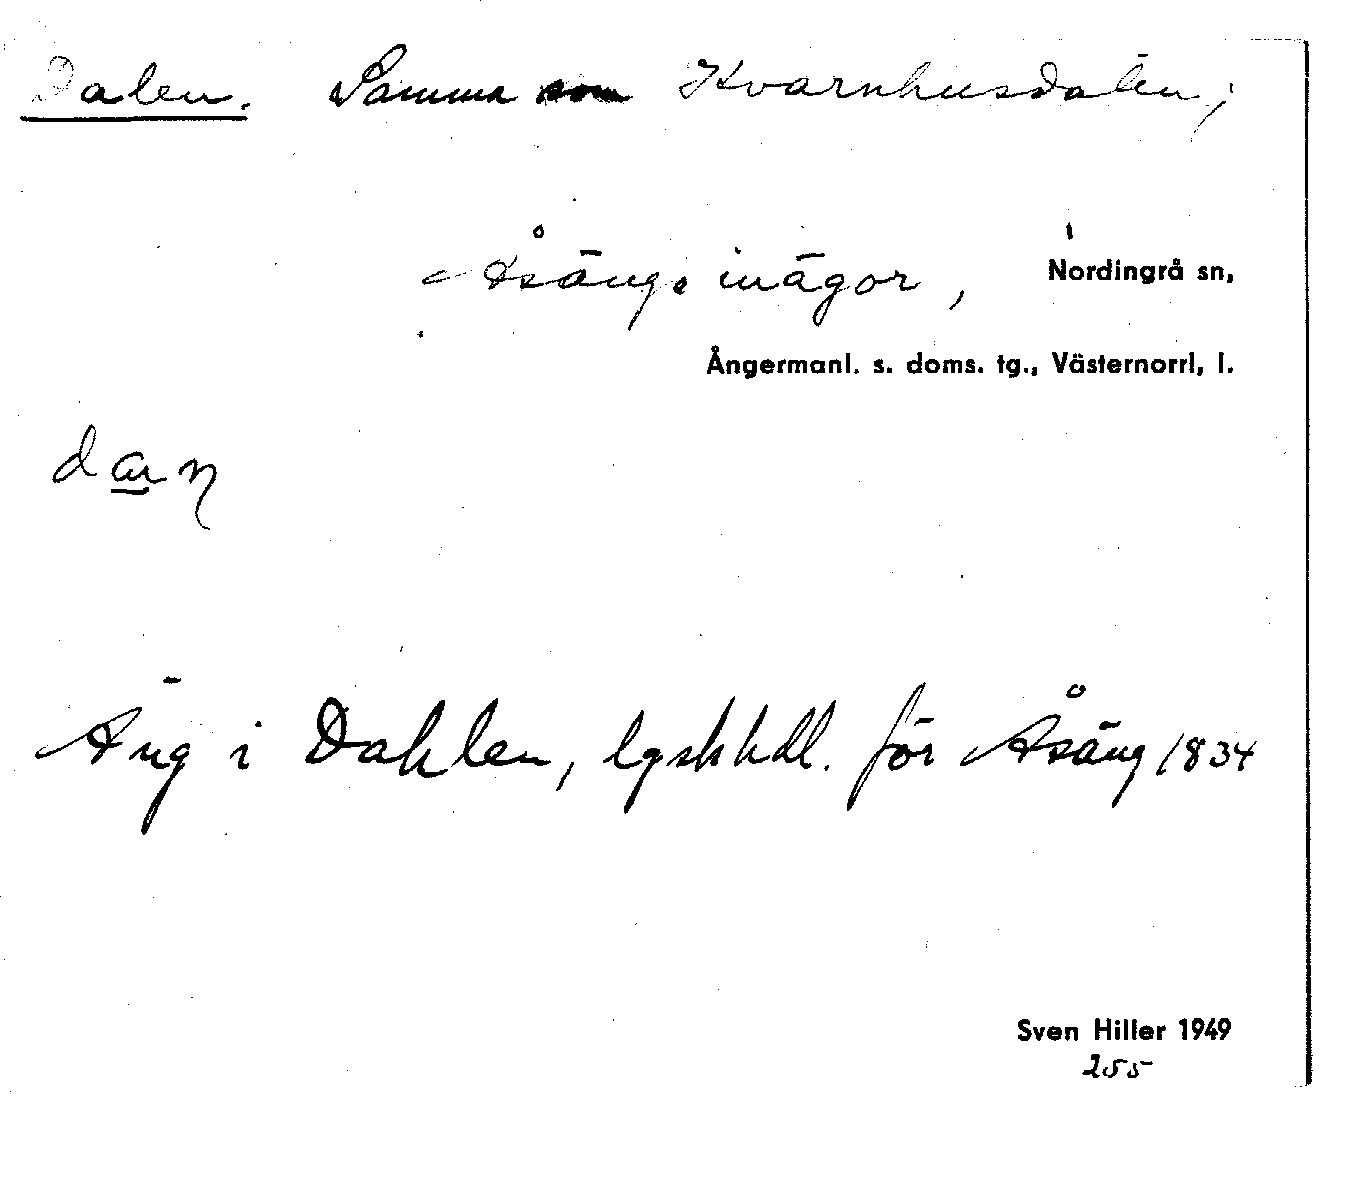 Dalen. Samma som Kvarnhusdalen;
Åsängs inägor, Nordingrå sn,
Ångermanl. s. doms. tg., Västernorrl, l.
Äng i Dahlen, lgskhdl. för Åsäng 1834
Sven Hiller 1949
255